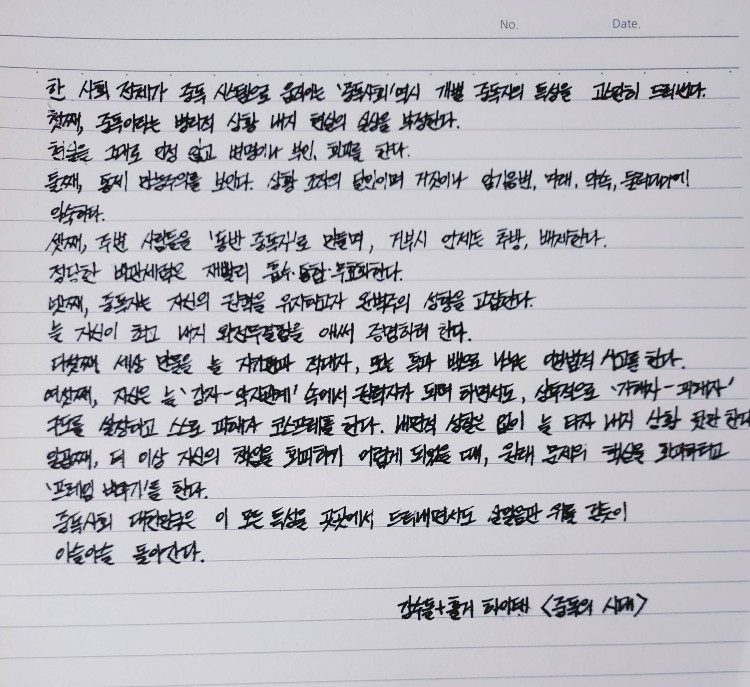 No. Date.
한 사회 전체가 중독 시스템으로 움직이는 '중독사회' 역시 개별 중독자의 특성을 고스란히 드러낸다.
첫째, 중독이라는 병리적 상황 내지 현실의 실상을 부정한다.
현실을 그대로 인정 않고 변명이나 부인, 회피를 한다.
둘째, 통제 만능주의를 보인다. 상황 조작의 달인이며 거짓이나 임기응변, 미래, 약속, 둘러대기에
익숙하다.
셋째, 주변 사람들을 '동반 중독자'로 만들며, 거부시 언제든 추방, 배제한다.
정당한 비판세력은 재빨리 흡수·통합·무효화한다.
넷째, 중독자는 자신의 권력을 유지하고자 완벽주의 성향을 고집한다.
늘 자신이 최고 내지 완전무결함을 애써 증명하려 한다.
다섯째 세상 만물을 늘 자기편과 적대자, 또는 흑과 백으로 나누는 이분법적 사고를 한다.
여섯째, 자신은 늘 '강자-약자관계' 속에서 권력자가 되려 하면서도, 상투적으로 '가해자-피해자'
구도를 설정하고 스스로 피해자 코스프레를 한다. 내면적 성찰은 없이 늘 타자 내지 상황 탓만 한다
일곱째, 더 이상 자신의 책임을 회피하기 어렵게 되었을 때, 원래 문제의 핵심을 회피하려고
'프레임 바꾸기'를 한다.
중독사회 대한민국은 이 모든 특성을 곳곳에서 드러내면서도 살얼음판 위를 걷듯이
아슬아슬 돌아간다.
강수돌+홀거 하이데 <중독의 시대>